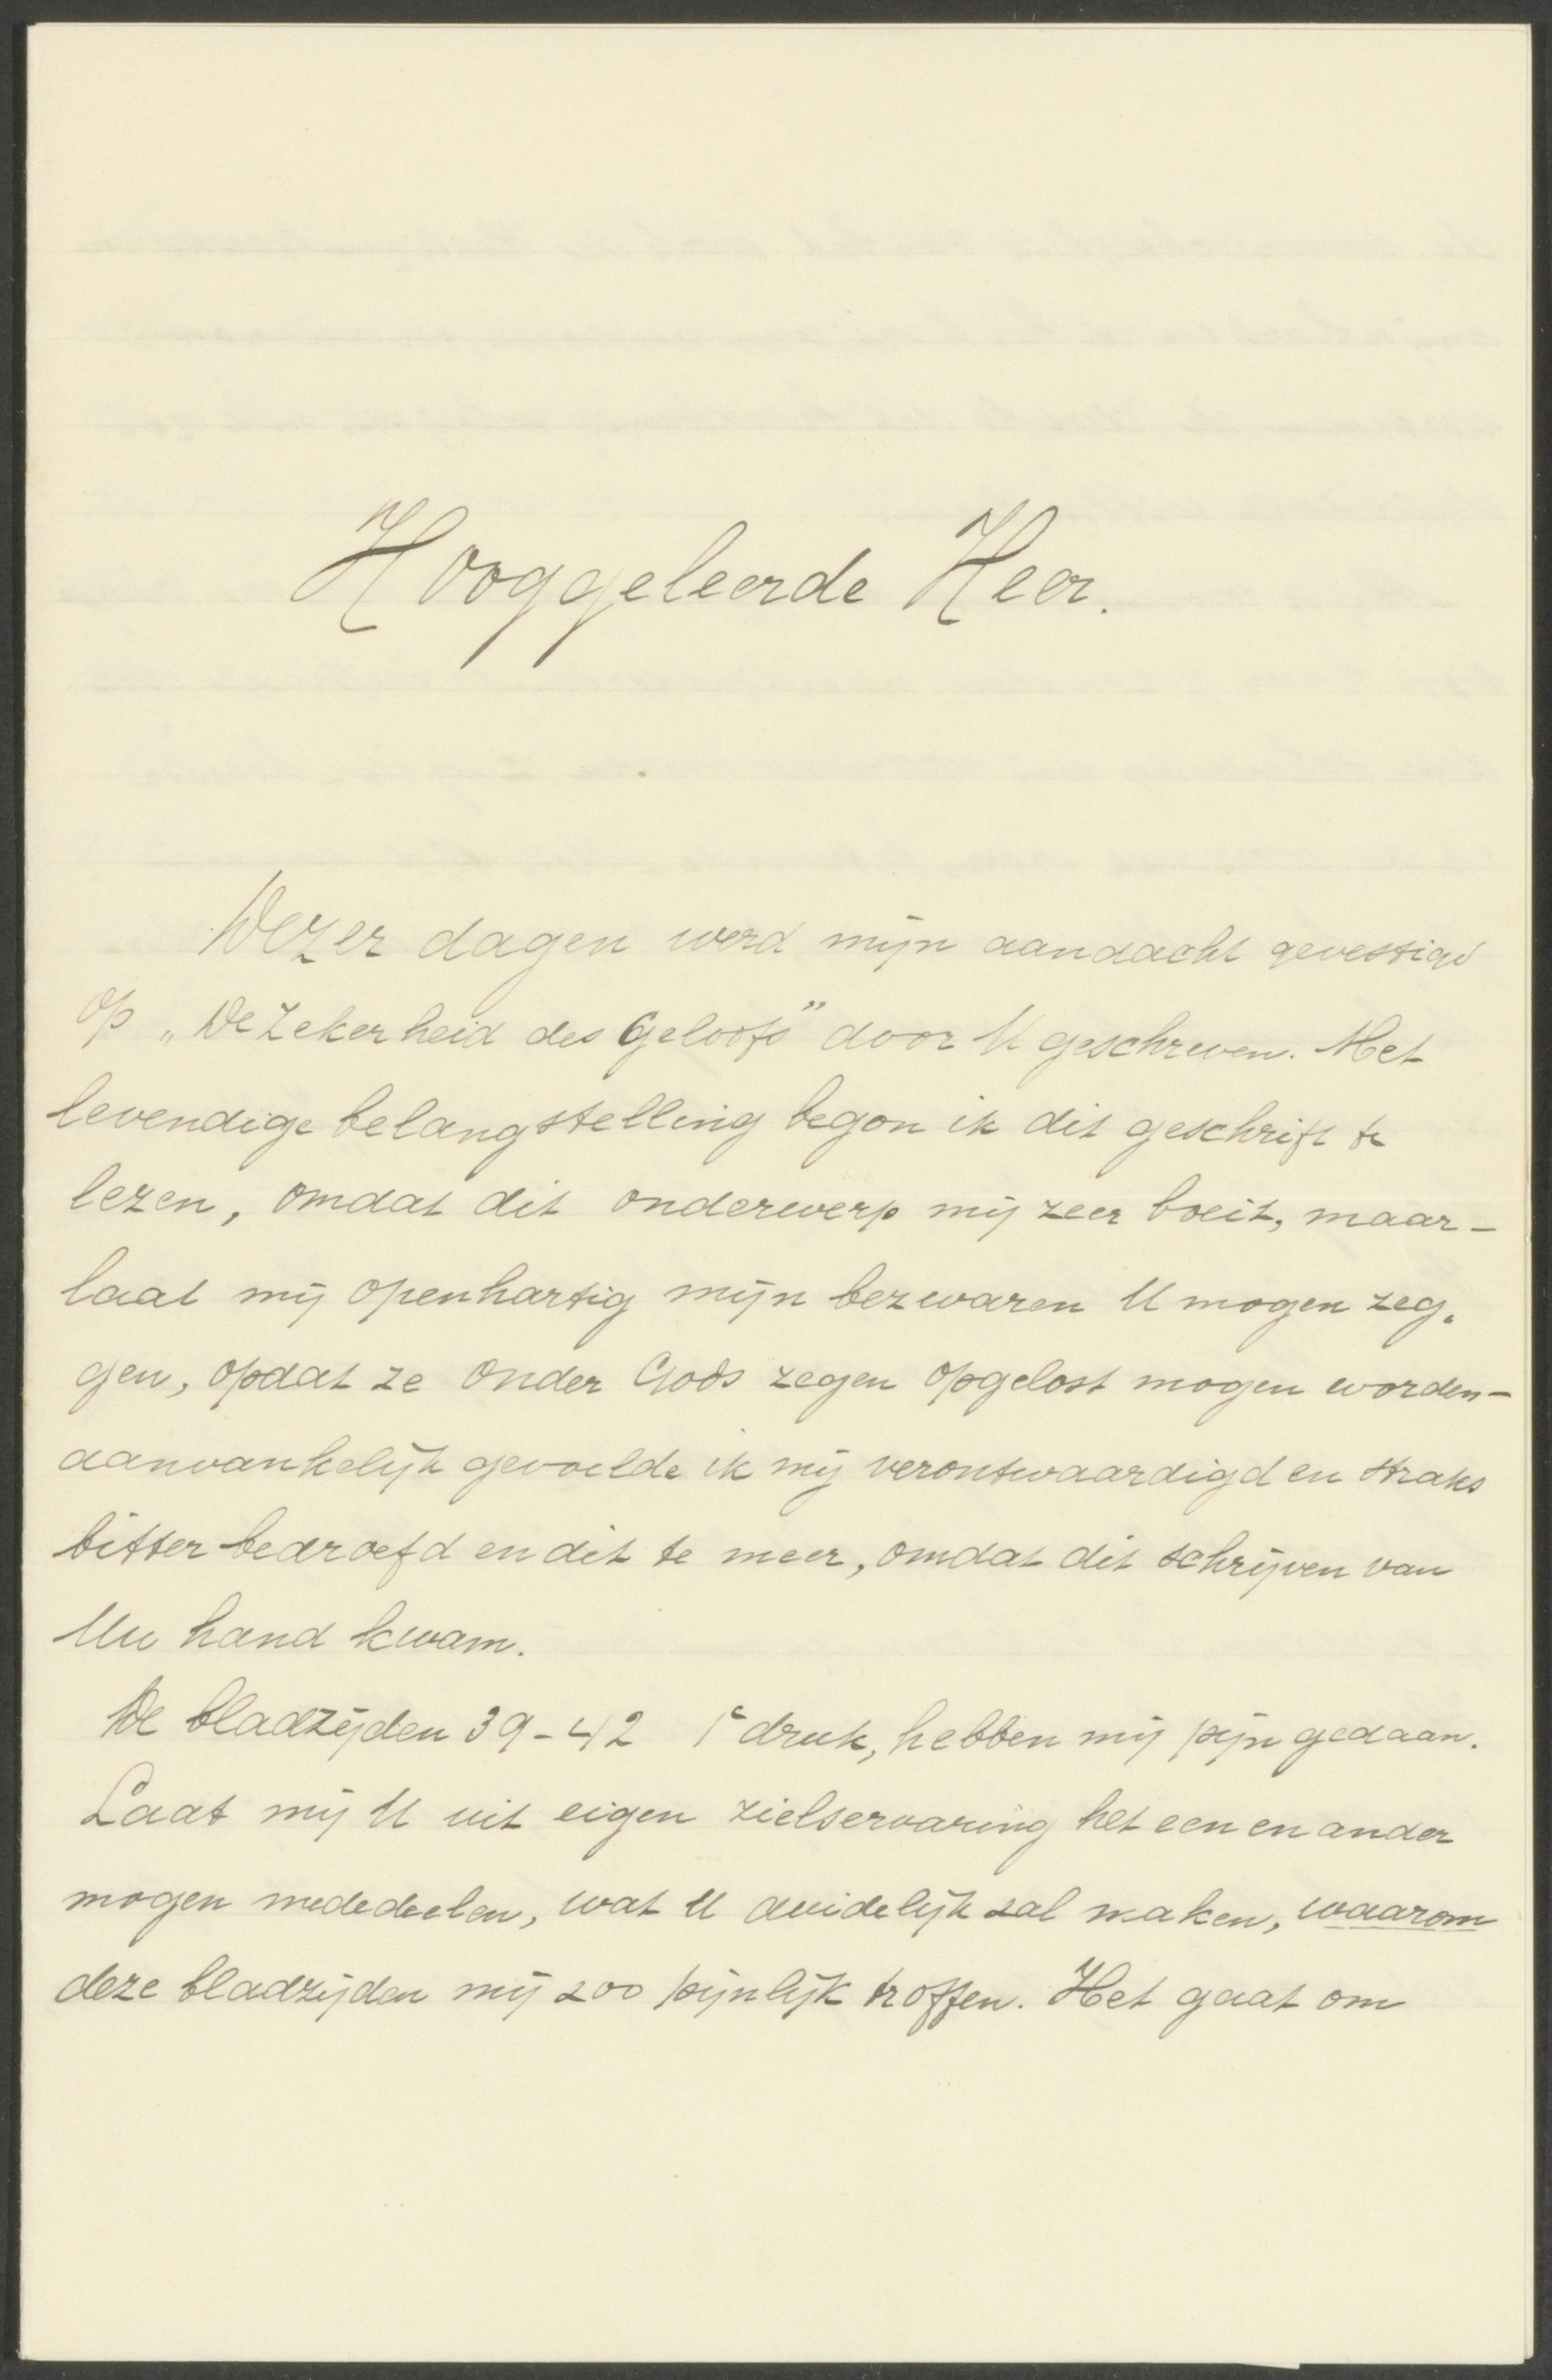 Hooggeleerde Heer.
Dezer dagen werd mijn aandacht gevestigd
op „De Zekerheid des Geloofs" door U geschreven. Met
levendige belangstelling begon ik dit geschrift te
lezen, omdat dit onderwerp mij zeer boeit, maar-
laat mij openhartig mijn bezwaren U mogen zeg-
gen, opdat ze onder Gods zegen opgelost mogen worden-
aanvankelijk gevoelde ik mij verontwaardigd en straks
bitter bedroefd en dit te meer, omdat dit schrijven van
Uw hand kwam.
De bladzijden 39-42 1e druk, hebben mij pijn gedaan.
Laat mij U uit eigen zielservaring het een en ander
mogen mededeelen, wat U duidelijk zal maken, waarom
deze bladzijden mij zoo pijnlijk troffen. Het gaat om